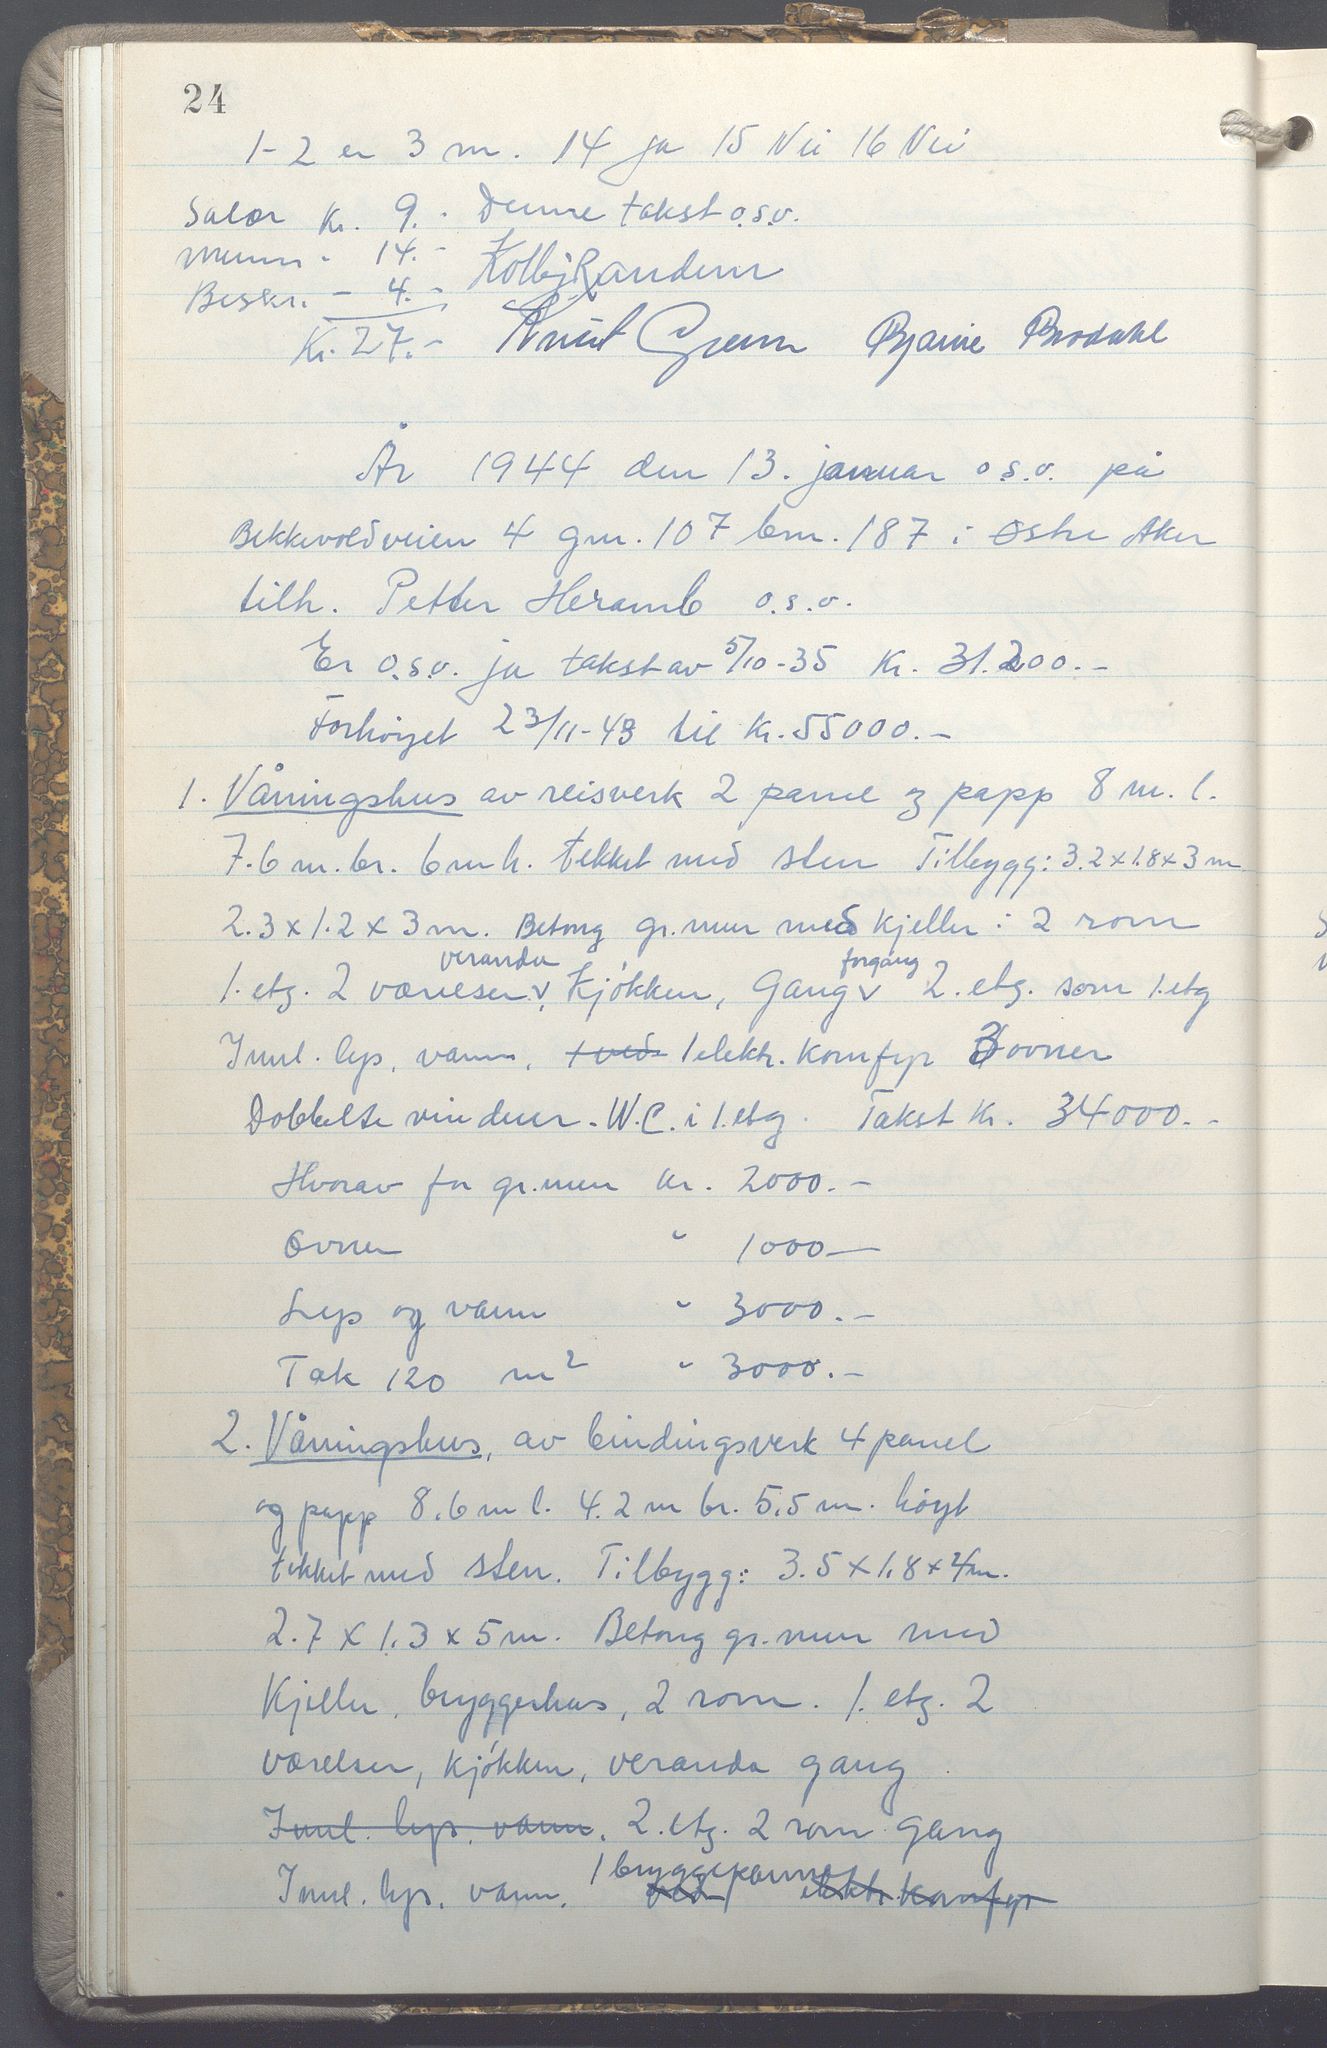 24
1-2 er 3 m. 14 ja 15 Nei 16 Nei
Salær Kr. 9.- Denne takst o.s.v.
- 14.-
Beskr. - 4.-
Kr. 27.- Knut Bjarne Brodahl
År 1944 den 13. januar o.s.v. på
Bekkevoldveien 4 gnr. 107 bnr. 187 i Østre Aker
tilh. Petter Heramb o.s.v.
Er o.s.v. ja takst av 5/10-35 Kr. 31.200.-
Forhöyet 23/11-43 til Kr. 55000.-
1. Våningshus av reisverk 2 panel og papp 8 m. l.
7.6 m. br. 6 m h. tekket med sten Tilbygg: 3.2 x 1.8 x 3 m
2.3 x 1.2 x 3 m. Betong gr.mur med kjeller: 2 rom
veranda forgang
1. etg. 2 værelser v, kjökken, Gang v 2. etg. som 1. etg
Innl. lys, vann, 1 elektr. Komfyr 3 ovner
Dobbelte vinduer. W.C. i 1. etg. Takst Kr. 34000.-
Hvorav for gr.mur Kr. 2000.-
Ovner " 1000-
Lys og vann " 3000.-
Tak 120 m2 " 3000.-
2. Våningshus, av bindingsverk 4 panel
og papp 8.6 m l. 4.2 m br. 5.5 m. höyt
tekket med sten. Tilbygg: 3.5 x 1.8 x 4 m.
2.7 x 1.3 x 5 m. Betong gr.mur med
Kjeller, bryggerhus, 2 rom. 1. etg. 2
værelser, kjökken, veranda gang
Innl. lys, vann. 2. etg. 2 rom Gang
1 bryggepanne
Innl. lys, vann. ved elektr. Komfyr